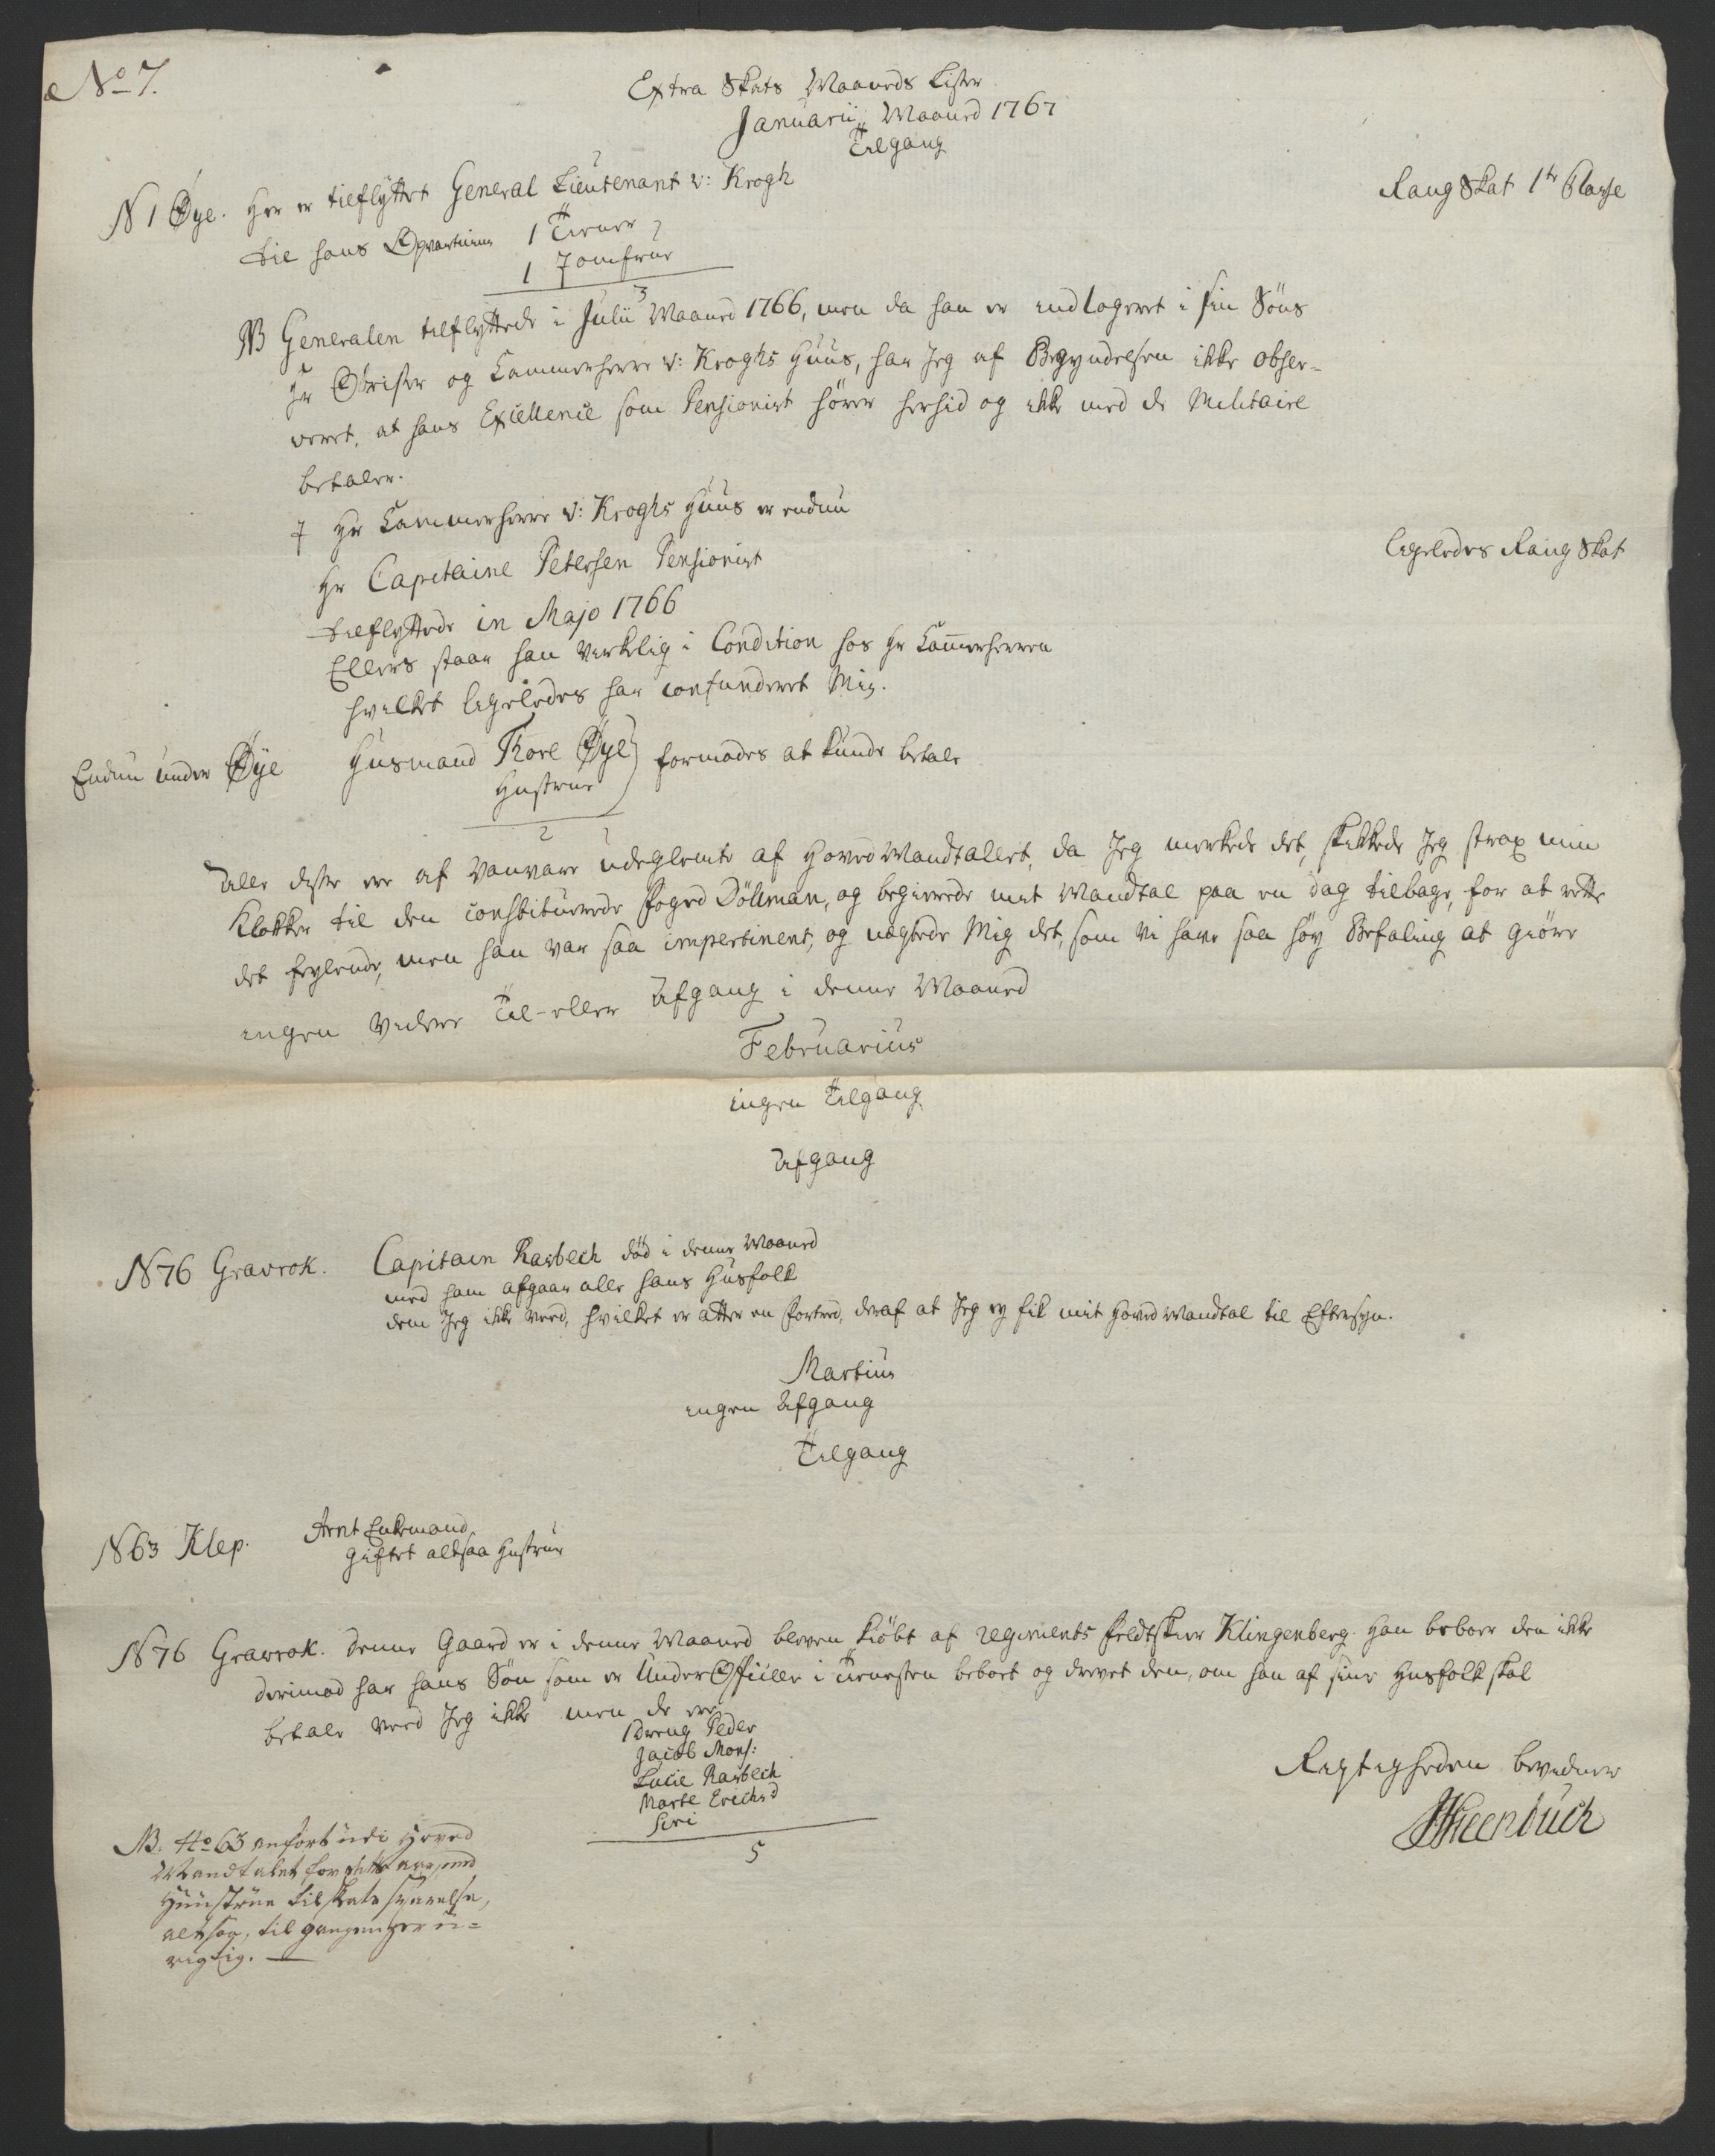 No 7.
Extra Skats Maaneds Lister
Januarii Maaned 1767
Tilgang
N 1 Øye. Her er tilflyttet General Lieutenant v: Krogh
Rang Skat 1te Classe
til hans Opvartning 1 Tiener
1 Jomfrue
3
NB Generalen tilflyttede i Julii Maaned 1766, men da han er indlogeret i sin Söns
Hr Obrister og Cammerherre v: Kroghs Huus, har Jeg af Begyndelsen ikke obser-
veret, at hans Excellence som Pensionist hörer herhid og ikke med de Militaire
betaler.
I Hr Cammerherre v: Kroghs Huus er endnu
Hr Capitaine Petersen Pensionist
ligeledes Rang Skat
tilflyttede in Majo 1766
Ellers staar han virkelig i Condition hos Hr Cammerherren
hvilket ligeledes har confunderet Mig.
Endnu under Øye Husmand Tore Øye
Hustrue } formodes at kunde betale
2
Alle disse ere af Vanvare udeglemte af HovedMandtallet, da Jeg merkede det, skikkede Jeg strax min
Klokker til den constituerede Foged Döllman, og begierede mit Mandtal paa en dag tilbage, for at rette
det feylende, men han var saa impertinent, og nægtede Mig det, som vi have saa höy Befaling at giöre
ingen videre Til- eller Afgang i denne Maaned
Februarius
ingen Tilgang
Afgang
N 76 Gravrok. Capitain Rasbech död i denne Maaned
med ham afgaar alle hans Husfolk
dem Jeg ikke veed, hvilket er atter en Fortred, deraf at Jeg ey fik mit Hoved Mandtal til Eftersyn.
Martius
ingen Afgang
Tilgang
N 63 Klep. Arnt Enkemand
giftet altsaa Hustrue
N 76 Gravrok. Denne Gaard er i denne Maaned bleven kiöbt af Regiments Feldtskier Klingenberg. Han beboer den ikke
derimod har hans Sön som er UnderOfficier i Tienesten beboet og drevet den, om han af sine Husfolk skal
betale veed Jeg ikke men de ere
1 Dreng Peder
Jacob Mons:
Lucie Rasbech
Marte Erichsd
Siri
5
Rigtigheden bevidner
HSteenbuch
NB. No 63 anfört udi Hoved
Mandtalet for dette aar, med
Huustrue til skats svarelse,
altsaa, til gangen her u-
rigtig.